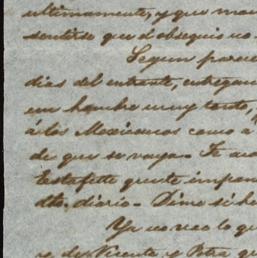 ultimamente, y que man
sentirse que el obsequio no
Segun parece
dias del entrante, entregan
un hombre muy tonto,
á los Mexicanos como a
de que se vaya. Te
Estafette que te impon
dto. diario. Dime si he
Yo no veo lo qu
y de Vicente y Petra qu